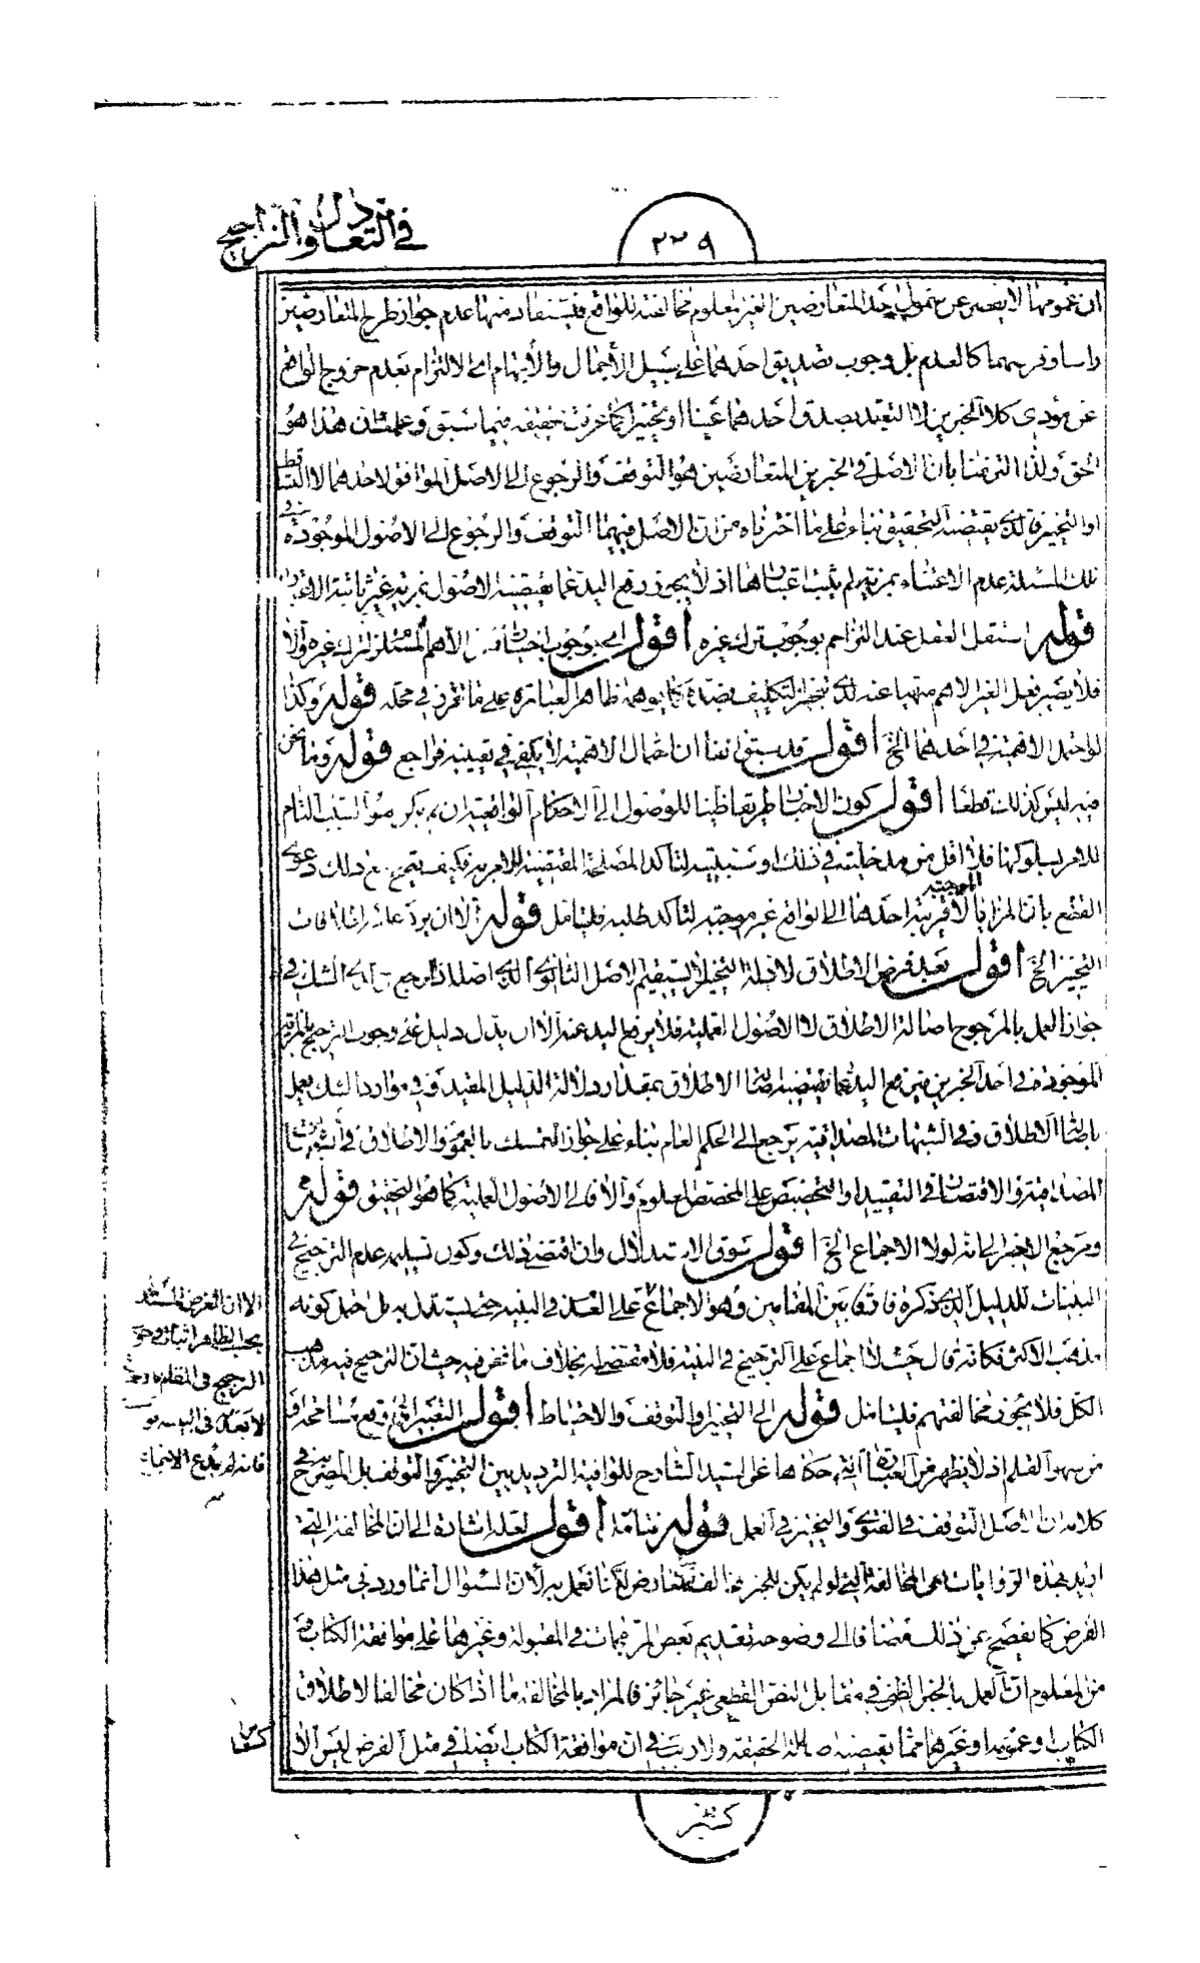 في التعادل والتراجيح
٢٣٩
ان عمومها لا يقصر عن شمول احد المتعارضين الغير المعلوم مخالفته للواقع فيستفاد منها عدم جواز طرح المتعارضين
راسا وفرضهما كالعدم بل وجوب تصديق احدهما على سبيل الأجمال والأبهام اى الالتزام بعدم خروج الواقع
عن مؤدى كلا الخبرين لا التعبد بصدق احدهما عينا او تخييرا كما عرفت تحقيقه فيما سبق وعلمت ان هذا هو
الحق ولذا التزمنا بان الاصل في الخبرين المتعارضين هو التوقف والرجوع الى الاصل الموافق لاحدهما لا التساقط
او التخيير فالذى يقتضيه التحقيق بناء على ما اخترناه من ان الاصل فيهما التوقف والرجوع الى الاصول الموجودة في
تلك المسئلة عدم الاعتناء بمزية لم يثبت اعتبارها اذ لا يجوز رفع اليد عما يقتضيه الاصول بمزية غير ثابتة الاعتبار
قوله استقل العقل عند التزاحم بوجوب ترك غيره اقول اى بوجوب اختيار الأهم المستلزم لترك غيره والا
فلا يصير فعل الغير الاهم منهيا عنه لدى تنجز التكليف بضده كما يوهمه ظاهر العبارة على ما تقرر في محله قوله وكذا
لو احتمل الاهمية في احدهما الخ اقول قد سبق انفا ان احتمال الاهمية لا يكفى في تعيينه فراجع قوله وما نحن
فيه ليس كذلك قطعا اقول كون الاخبار طريقا ظنيا للوصول الى الاحكام الواقعية ان لم يكن هو السبب التام
للامر بسلوكها فلا اقل من مدخليته في ذلك او سببيته لتاكد المصلحة المقتضية للامر به فكيف يتجه مع ذلك دعوى
القطع بان المزايا الموجبة لأقربية احدهما الى الواقع غير موجبة لتاكد طلبه فليتامل قوله الا ان يرد عليه اطلاقات
التخيير الخ اقول بعد فرض الاطلاق لادلة التخيير يستقيم الاصل الثانوى الذى اصلناه المرجع لدى الشك في
جواز العمل بالمرجوح اصالة الاطلاق لا الاصول العملية فلا يرفع اليد عنه الا ان يدل دليل على وجوب الترجيح بالمزية
الموجودة في احد الخبرين فيرفع اليد عما يقتضيه اصالة الاطلاق بمقدار دلالة الدليل المقيد وفي موارد الشك يعمل
باصالة الاطلاق وفي الشبهات المصداقية يرجع الى الحكم العام بناء على جواز التمسك بالعموم والاطلاق في الشبهات
المصداقية والاقتصار في التقييد والتخصيص على المخصص المعلوم والا فالى الاصول العملية كما هو التحقيق قوله
ومرجع الاخير الى انه لولا الاجماع الخ اقول سوق الاستدلال وان اقتضى ذلك وكون تسليمه عدم الترجيح في
البينات للدليل الذى ذكره فارقا بين المقامين وهو الاجماع على العدم في البينة حيث يستدل به بل احتمل كونه
مذهب الاكثر فكانه قال حيث لا اجماع على الترجيح في البينة فلا مقتضى له بخلاف ما نحن فيه حيث ان الترجيح فيه مذهب
الكل فلا يجوز مخالفتهم فليتامل قوله الى التخيير او التوقف والاحتياط اقول التعبير وقع مسامحة او
من سهو القلم اذ لا يظهر من العبارة التى حكاها عن السيد الشارح للوافية الترديد بين التخيير والتوقف بل المصرح به في
كلامه ان الاصل التوقف في الفتوى والتخيير في العمل قوله فتامل اقول لعله اشارة الى ان المخالفة التى
اريد بهذه الروايات هى المخالفة التى لو لم يكن للخبر المخالف معارض لكنا نعمل به لأن السؤال انما ورد في مثل هذا
الفرض كما يفصح عن ذلك مضافا الى وضوحه تقديم بعض المرجحات في المقبولة وغيرها على موافقة الكتاب و
من المعلوم ان العمل بالخبر الظنى في مقابل النص القطعى غير جائز فالمراد بالمخالفة ما اذا كان مخالفا لاطلاق
الكتاب او عمومه او غيرهما مما يقتضيه اصالة الحقيقة ولا ريب في ان موافقة الكتاب ايضا في مثل الفرض ليس الا
الا ان الغرض
بحسب الظاهر اثبات وجوب
الترجيح في المقام
فانه لم يدع الاجماع